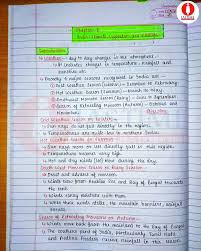 Chapter-8
India: Climate, Vegetation and Wildlife
Introduction
Weather - Day to day changes in the atmosphere.
It includes changes in temperature, rainfall and
sunshine etc.
Broadly 4 major seasons recognised in India are
Cold Weather Season (Winter) - December to February
Hot Weather Season (Summer) - March to May
Southwest Monsoon Season (Rainy) - June to September
Season of Retreating Monsoon (Autumn) - October and
November
Cold Weather Season or Winter
Sun rays do not fall directly in the region.
Temperatures are quite low in northern India.
Hot Weather Season or Summer
Sun rays more or less directly fall in this region.
Temperature becomes very high.
Hot and dry winds (loo) blow during the day.
South West Monsoon Season or Rainy Season
Onset and advance of monsoon.
Winds blow from Arabian Sea and Bay of Bengal towards
the land.
Winds bring moisture with them.
When these winds strike the mountains, rainfall
occurs.
Season of Retreating Monsoons or Autumn
Winds move back from the mainland to the Bay of Bengal.
The southern parts of India, particularly Tamil Nadu
and Andhra Pradesh receive rainfall in this season.